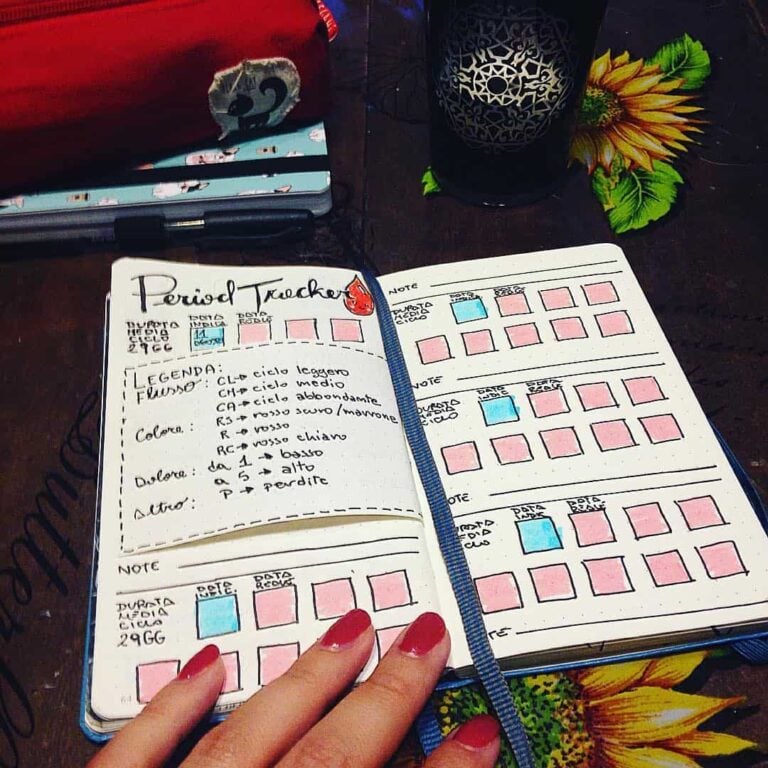 Period Tracker
DURATA MEDIA CICLO 29GG
DATA INDIC.
DATA REALE
11
LEGENDA:
Flusso: CL→ ciclo leggero
CM→ ciclo medio
CA→ ciclo abbondante
Colore: RS→ rosso scuro/marrone
R→ rosso
RC→ rosso chiaro
Dolore: da 1→ basso
a 5→ alto
Altro: P→ perdite
NOTE
DURATA MEDIA CICLO 29GG
DATA INDIC.
DATA REALE
NOTE
DURATA MEDIA CICLO
DATA INDIC.
DATA REALE
NOTE
DURATA MEDIA CICLO
DATA INDIC.
DATA REALE
NOTE
DURATA MEDIA CICLO
DATA INDIC.
DATA REALE
NOTE